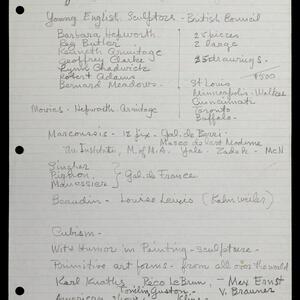 Young English Sculptors - British Council
Barbara Hepworth 25 pieces
Reg Butler 2 large
Kenneth Armitage
Geoffrey Clarke 25 drawings.
Lynn Chadwick $500
Robert Adams St Louis
Bernard Meadows. Minneapolis - Walker
Cincinnati
Movies - Hepworth Armitage Toronto
Buffalo -
Marcoussis - 12 fix - Gal. de Berri -
Museo d'art Moderne
Institute, M. of M.A. Yale - Zadok - McN
Singier
Pignon } Gal. de France
Manessier
Beaudin - Louise Leiris (Kahnweiler)
Cubism -
Wit & Humor in Painting - sculpture -
Primitive art forms - from all over the world
Karl Knaths Rico LeBrun, - Max Ernst
Philip Guston - V. Brauner
American